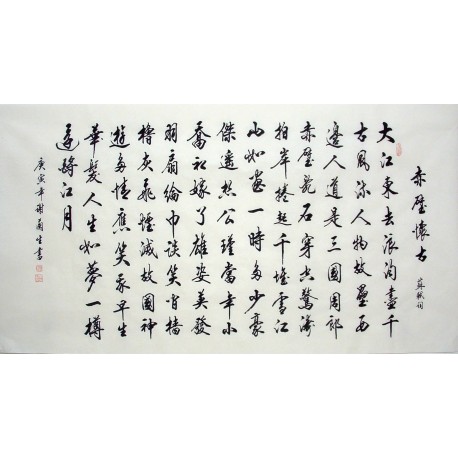 赤壁懷古
蘇軾詞
大江東去浪淘盡千
古風流人物故壘西
邊人道是三國周郎
赤壁亂石穿空驚濤
拍岸捲起千堆雪江
山如畫一時多少豪
傑遙想公瑾當年小
喬初嫁了雄姿英發
羽扇綸巾談笑間檣
櫓灰飛煙滅故國神
遊多情應笑我早生
華髮人生如夢一樽
還酹江月
庚寅年謝蘭生書